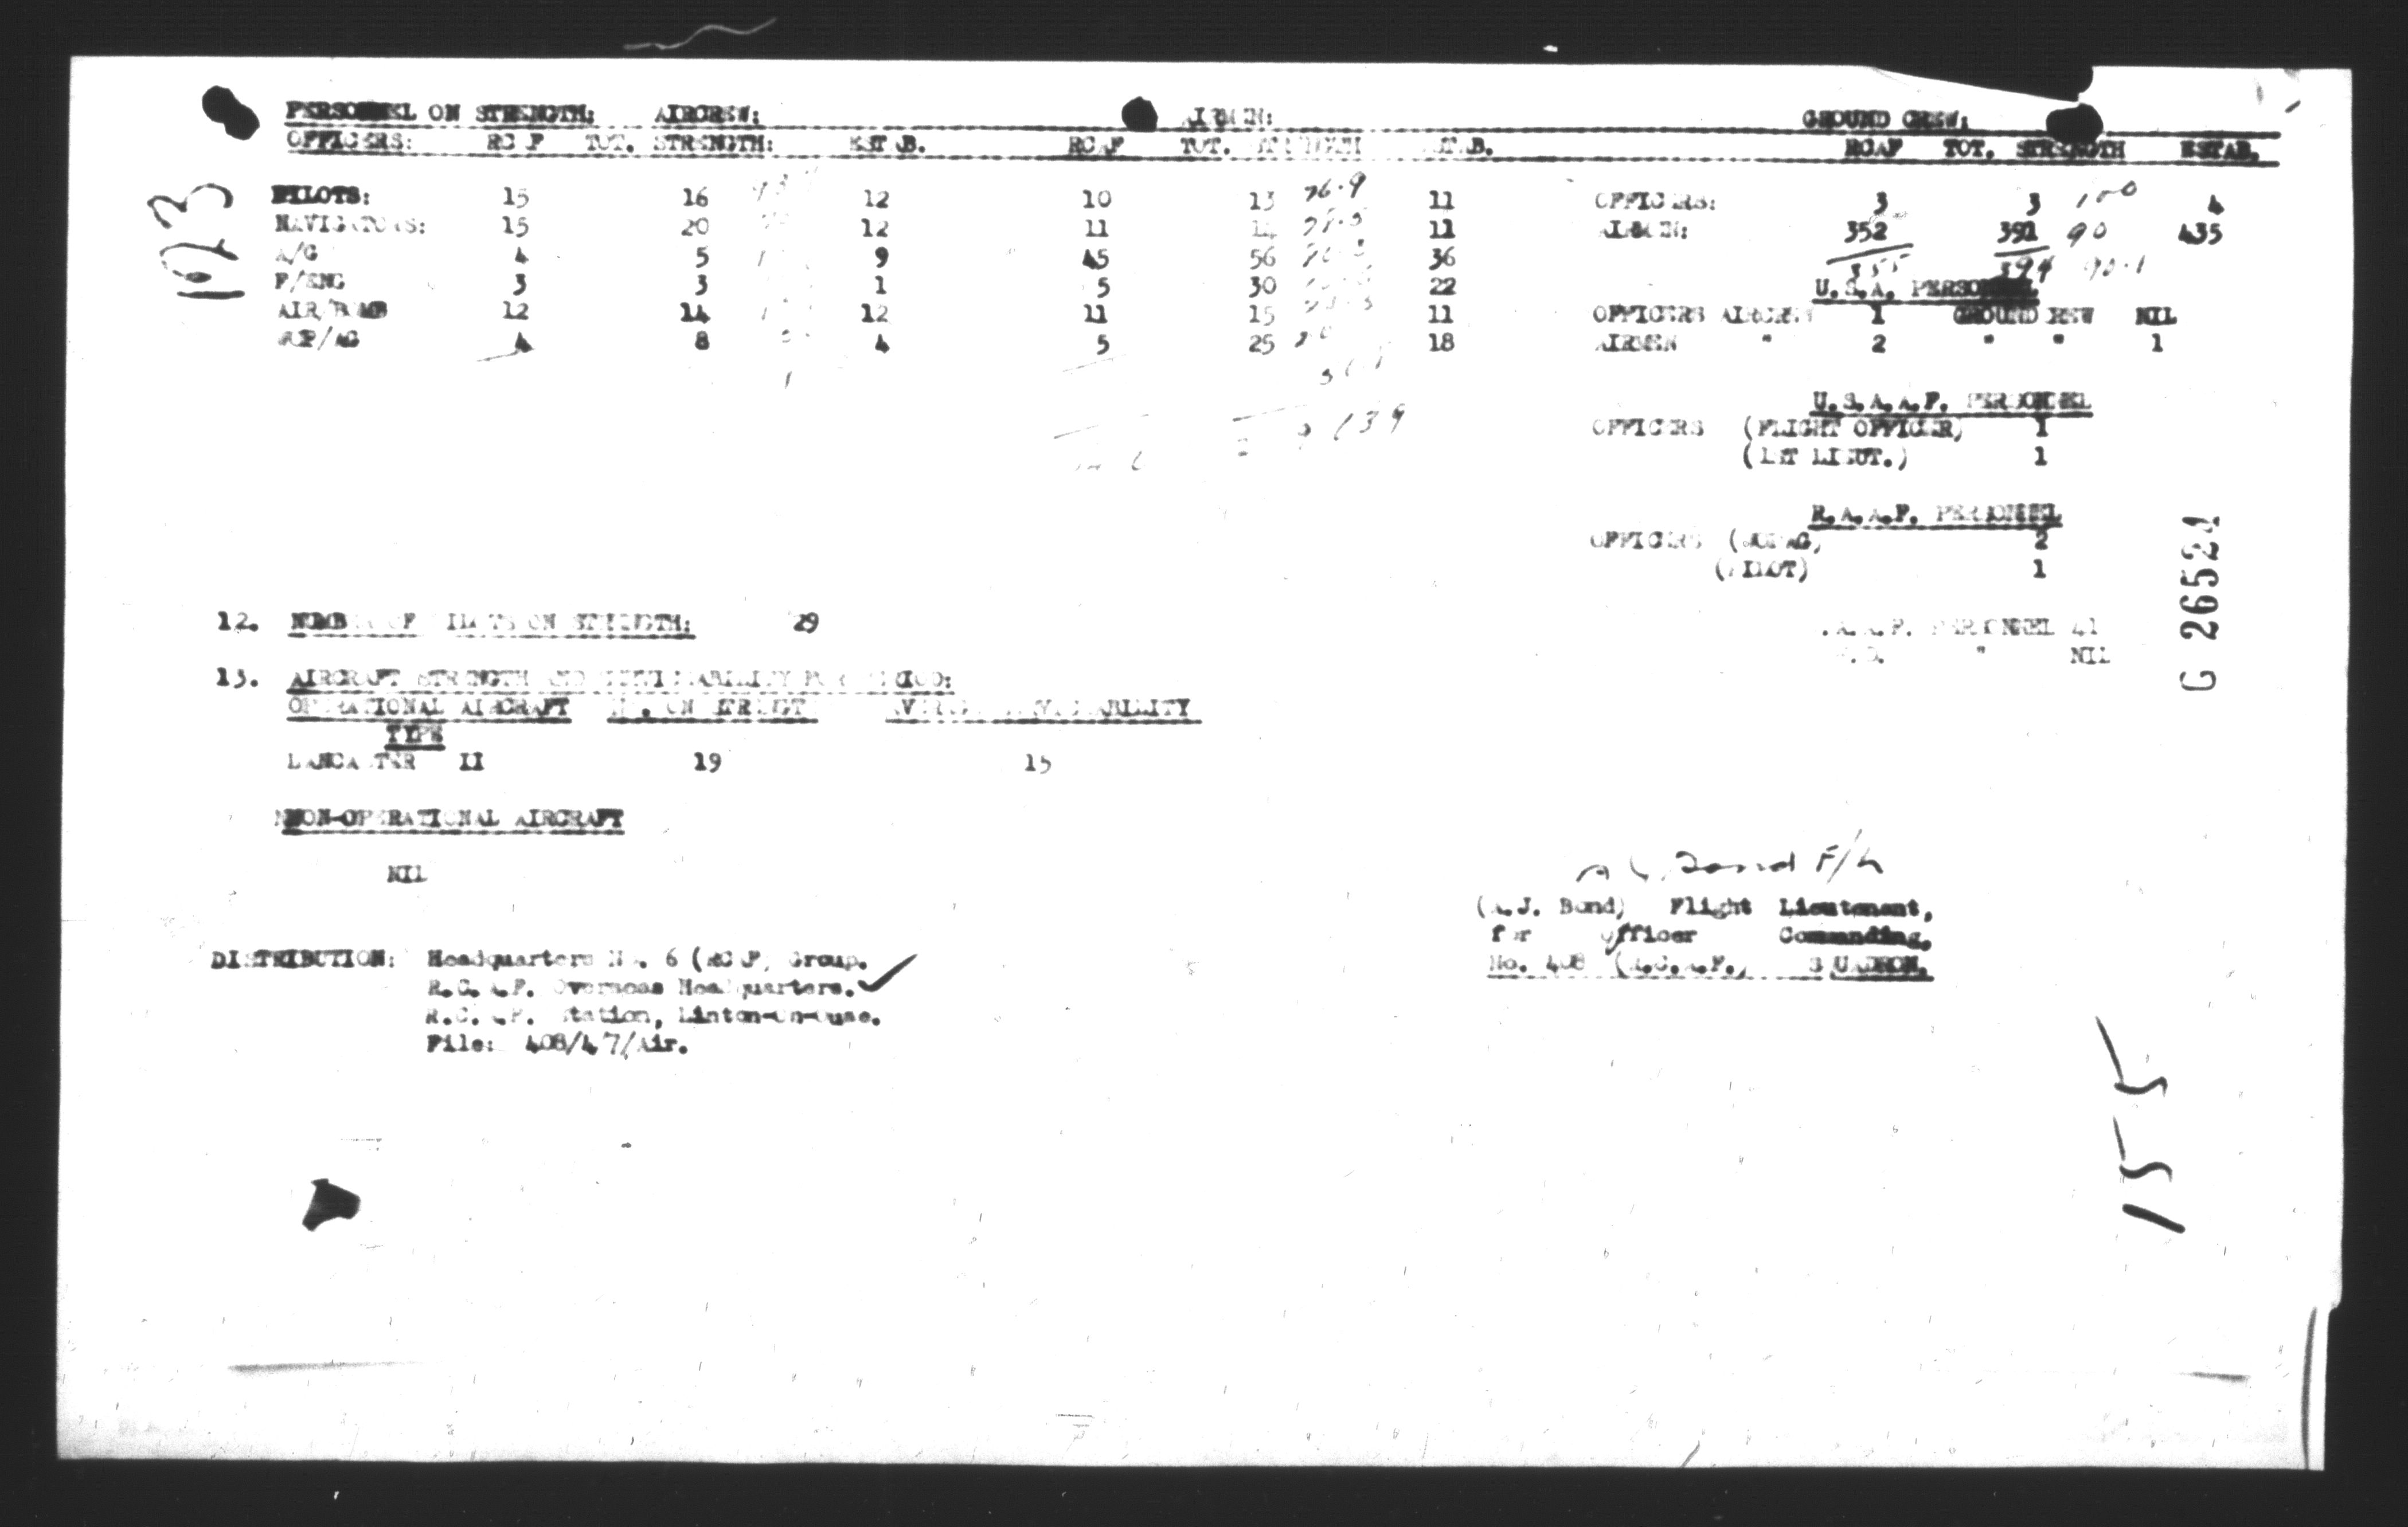 PERSONNEL ON STRENGTH: AIRCREW: AIRMEN: GROUND CREW:
OFFICERS: RCAF TOT. STRENGTH: ESTAB. RCAF TOT. STRENGTH ESTAB. RCAF TOT. STRENGTH ESTAB.
PILOTS: 15 16 12 10 13 76.9 11 OFFICERS: 3 3 100 4
NAVIGATORS: 15 20 12 11 14 11 AIRMEN: 352 391 90 435
A/G 4 5 9 45 56 36 355 394 90.1
F/ENG 3 3 1 5 30 22 U.S.A. PERSONNEL
AIR/BOMB 12 14 12 11 15 11 OFFICERS AIRCREW 1 GROUND REW NIL
WOP/AG 4 8 4 5 25 18 AIRMEN " 2 " " 1
139
U.S.A.A.F. PERSONNEL
OFFICERS (FLIGHT OFFICER) 1
(1ST LIEUT.) 1
R.A.A.F. PERSONNEL
OFFICERS (WOPAG) 2
(PILOT) 1
12. NUMBER OF PILOTS ON STRENGTH: 29
PERSONNEL 41
" NIL
13. AIRCRAFT STRENGTH AND SERVICEABILITY FOR PERIOD:
OPERATIONAL AIRCRAFT NO. ON STRENGTH AVERAGE SERVICEABILITY
TYPE
LANCASTER II 19 15
NNON-OPERATIONAL AIRCRAFT
NIL
A J Bond F/L
(A.J. Bond) Flight Lieutenant,
for Officer Commanding,
No. 408 (R.C.A.F.) SQUADRON.
DISTRIBUTION: Headquarters No. 6 (RCAF) Group.
R.C.A.F. Overseas Headquarters.
R.C.A.F. Station, Linton-on-Ouse.
File: 408/47/Air.
1923
G 26524
155